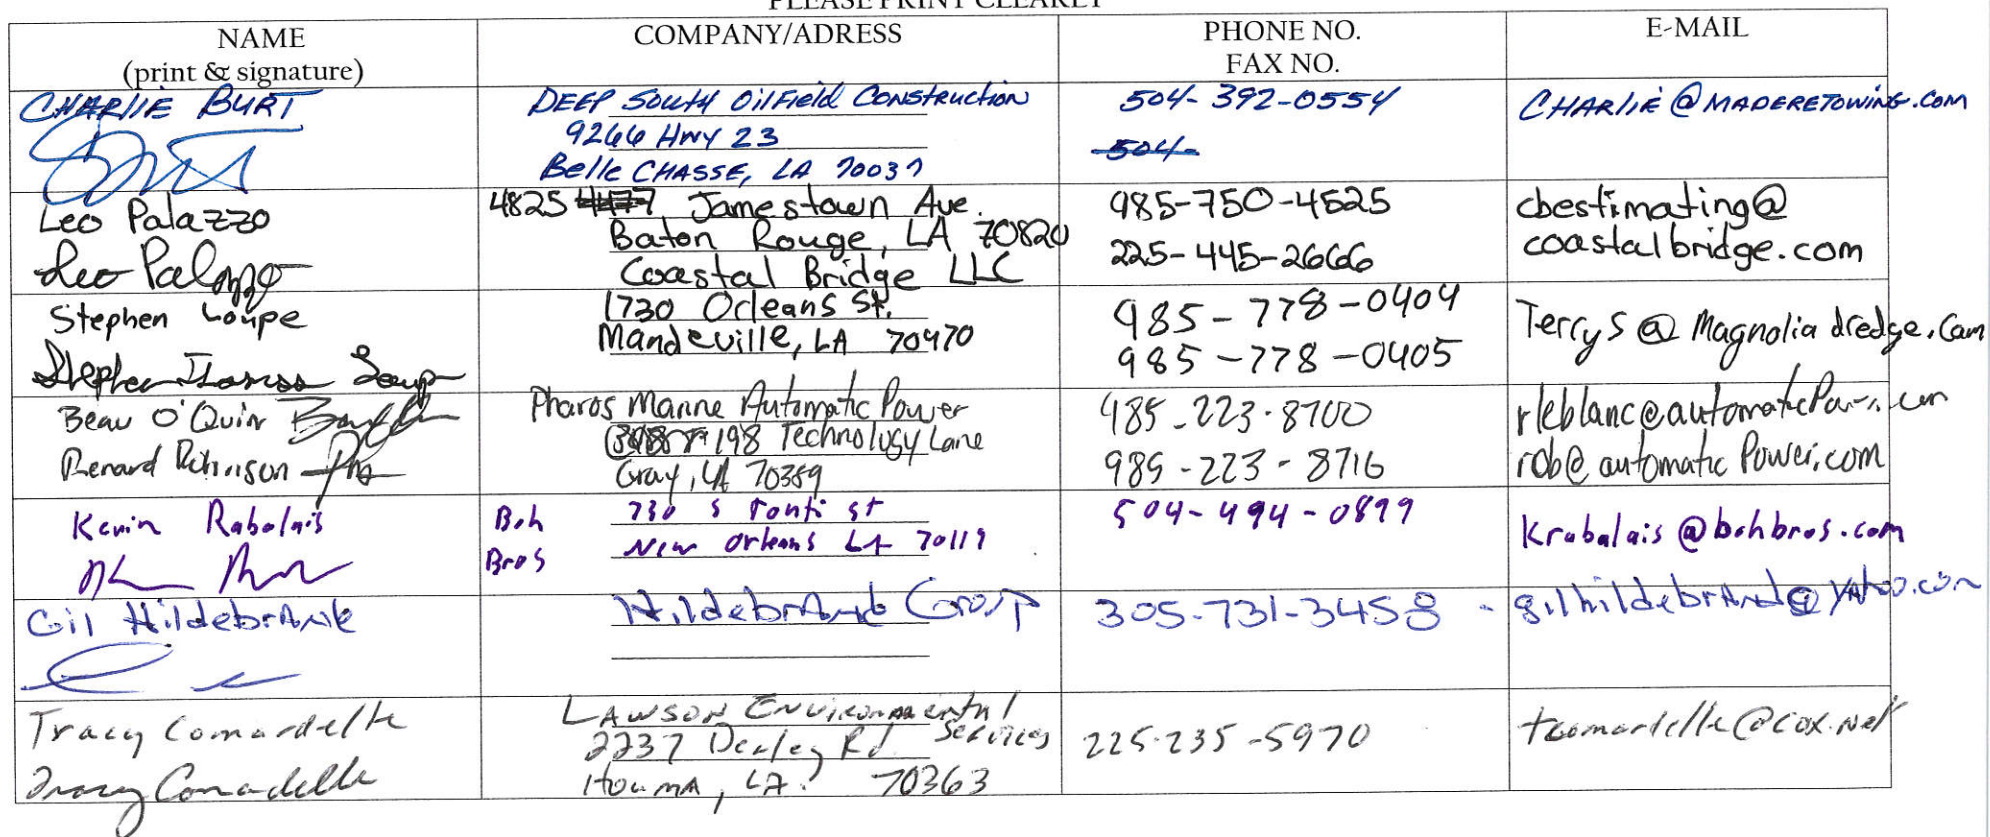 PLEASE PRINT CLEARLY
NAME
(print & signature)
COMPANY/ADRESS
PHONE NO.
FAX NO.
E-MAIL
CHARLIE BURT
DEEP SOUTH OILFIELD CONSTRUCTION
9266 HWY 23
Belle CHASSE, LA 70037
504-392-0554
504-
CHARLIE@MADERETOWING.COM
Leo Palazzo
Leo Palazzo
4825 4477 Jamestown Ave.
Baton Rouge, LA 70820
Coastal Bridge LLC
985-750-4525
225-445-2666
cbestimating@
coastalbridge.com
Stephen Loupe
Stephen Thomas Loupe
1730 Orleans St.
Mandeville, LA 70470
985-778-0404
985-778-0405
TerryS@Magnoliadredge.Com
Beau O'Quin
Renard Robinson
Pharos Marine Automatic Power
198 Technology Lane
Gray, LA 70359
985-223-8700
985-223-8716
rleblanc@automaticPower.com
rob@automaticPower.com
Kevin Rabalais
Boh
Bros
730 S Tonti St
New Orleans LA 70119
504-494-0899
Krabalais@bohbros.com
Gil HildebrAnd
HildebrAnd Group
305-731-3458 -
gilhildebrAnd@yAhoo.com
Tracy Comardelle
Tracy Comardelle
LAWSON ENVIRONMENTAL
Services
2237 Denley Rd
HOUMA, LA. 70363
225-235-5970
tcomardelle@cox.net